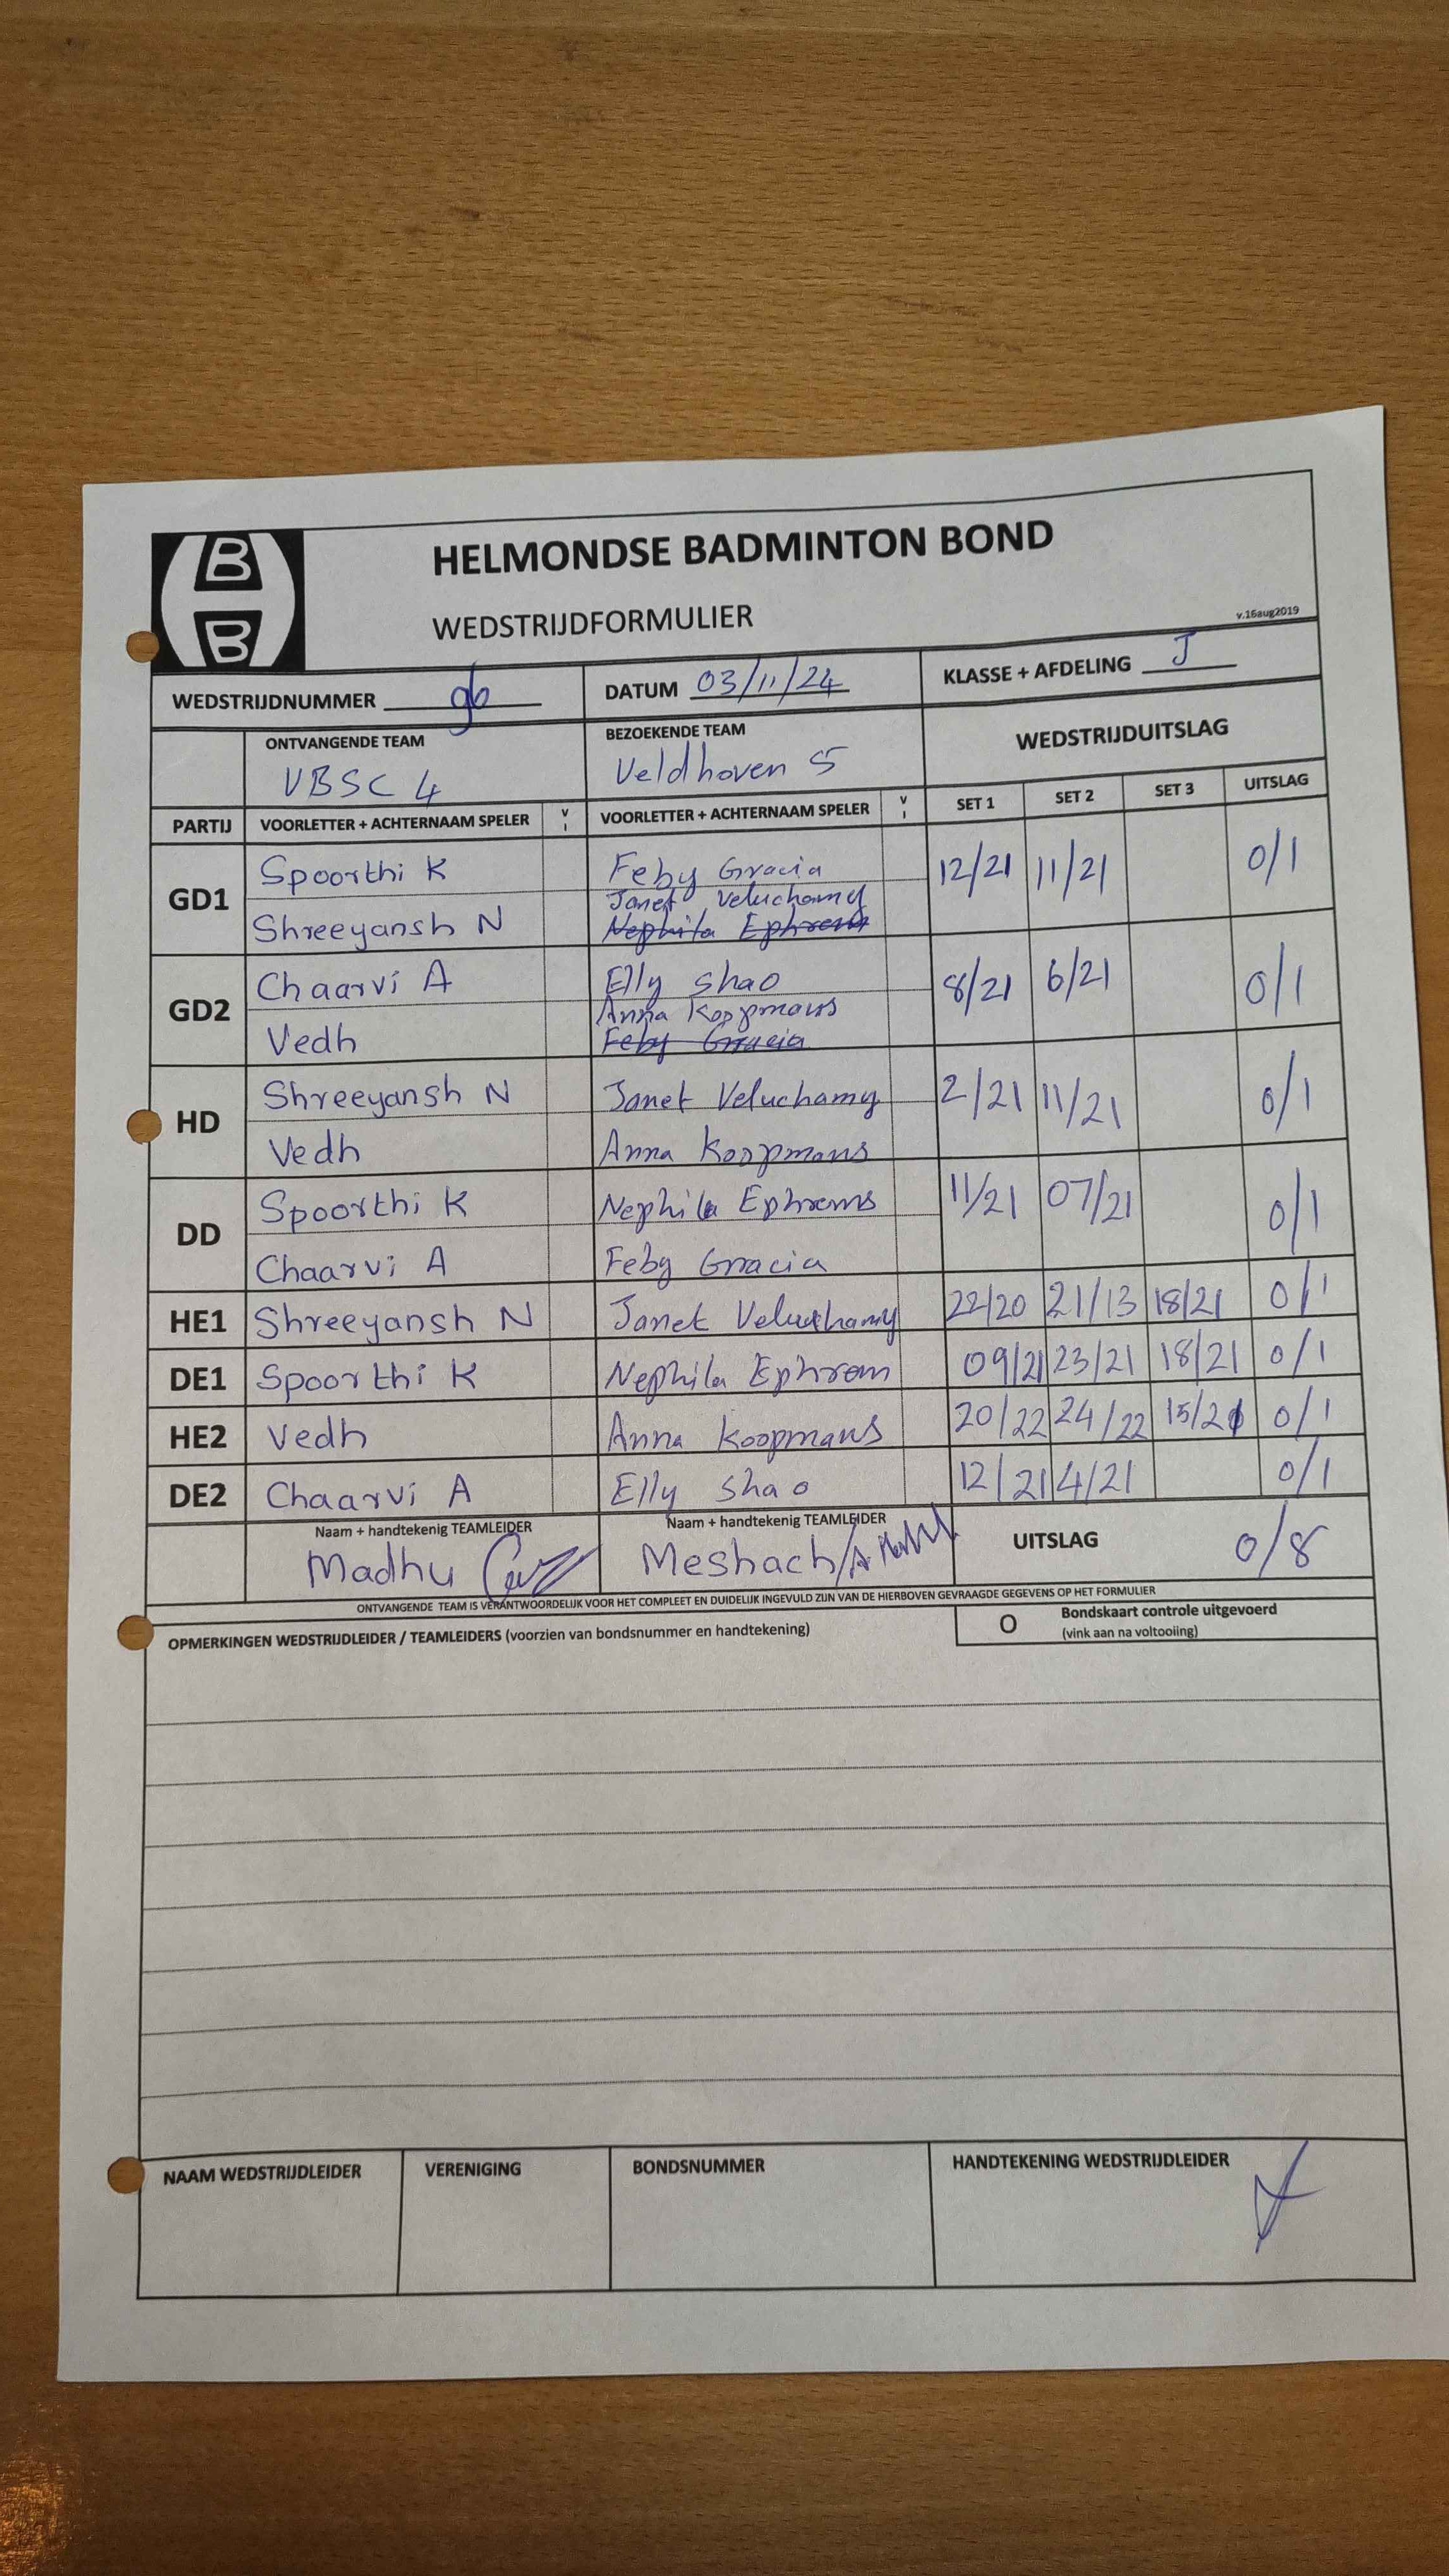 B
B
HELMONDSE BADMINTON BOND
WEDSTRIJDFORMULIER
v.16aug2019
WEDSTRIJDNUMMER DATUM 03/11/24 KLASSE + AFDELING J
ONTVANGENDE TEAM BEZOEKENDE TEAM WEDSTRIJDUITSLAG
VBSC 4 Veldhoven 5
PARTIJ VOORLETTER + ACHTERNAAM SPELER V I VOORLETTER + ACHTERNAAM SPELER V I SET 1 SET 2 SET 3 UITSLAG
GD1 Spoorthi K Feby Gracia 12/21 11/21 0/1
Janet Veluchamy
Shreeyansh N Nephila Ephrem
GD2 Chaarvi A Elly Shao 8/21 6/21 0/1
Anna Koopmans
Vedh Feby Gracia
HD Shreeyansh N Janet Veluchamy 2/21 11/21 0/1
Vedh Anna Koopmans
DD Spoorthi K Nephila Ephrems 11/21 07/21 0/1
Chaarvi A Feby Gracia
HE1 Shreeyansh N Janet Veluchamy 22/20 21/13 18/21 0/1
DE1 Spoorthi K Nephila Ephrem 09/21 23/21 18/21 0/1
HE2 Vedh Anna Koopmans 20/22 24/22 15/21 0/1
DE2 Chaarvi A Elly Shao 12/21 4/21 0/1
Naam + handtekenig TEAMLEIDER Naam + handtekenig TEAMLEIDER UITSLAG 0/8
Madhu Meshach
ONTVANGENDE TEAM IS VERANTWOORDELIJK VOOR HET COMPLEET EN DUIDELIJK INGEVULD ZIJN VAN DE HIERBOVEN GEVRAAGDE GEGEVENS OP HET FORMULIER
OPMERKINGEN WEDSTRIJDLEIDER / TEAMLEIDERS (voorzien van bondsnummer en handtekening) O Bondskaart controle uitgevoerd
(vink aan na voltooiing)
NAAM WEDSTRIJDLEIDER VERENIGING BONDSNUMMER HANDTEKENING WEDSTRIJDLEIDER